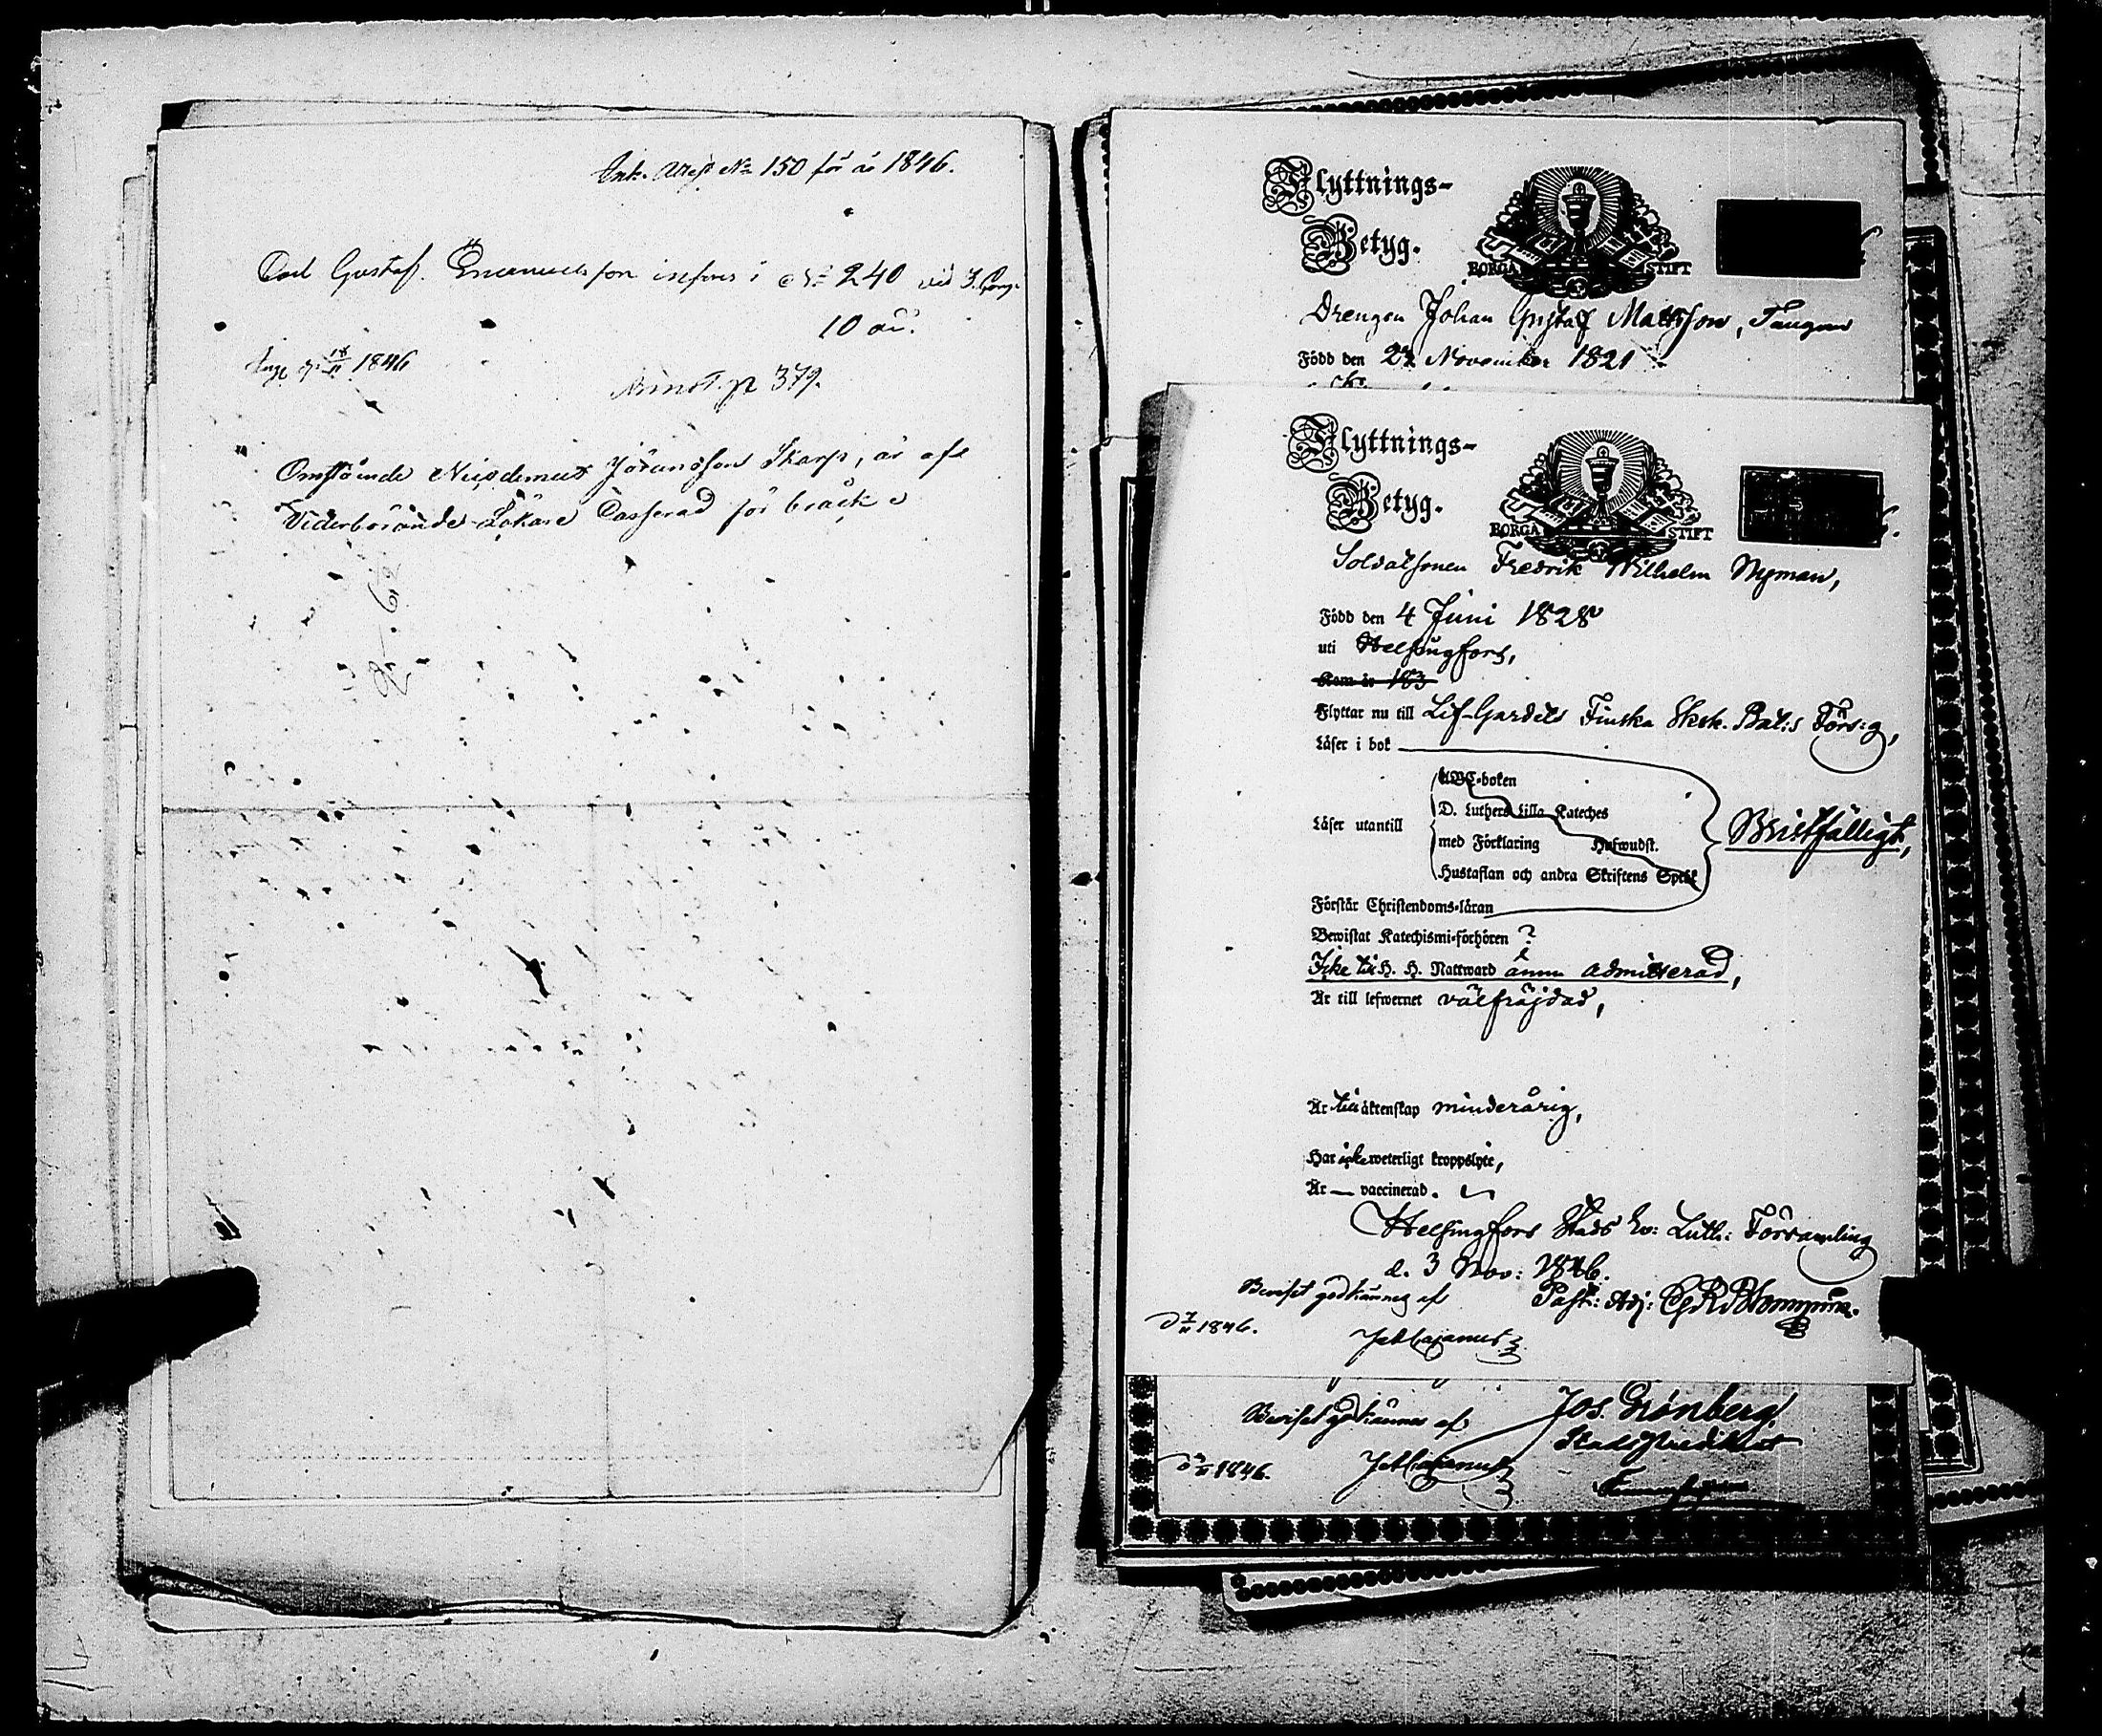 Ink. N:o 150 för år 1846.
Carl Gustaf Emanuelsson införes i N:o 240 vid 3. Comp.
10 år.
1846
p 379.
Omstående Nicodemus Göransson Skarp, är af
Vederbörande Läkare Casserad för bråck
Flyttnings-
Betyg.
BORGÅ STIFT
Drengen Johan Gustaf Mattsson,
Född den 22 November 1821
Flyttnings-
Betyg.
BORGÅ STIFT
Soldatsonen Fredrik Wilhelm Nyman,
Född den 4 Juni 1828
uti Helsingfors,
Kom år 183
Flyttar nu till Lif-Gardets Finska Sksk. Bat:s Förs:g,
Läser i bok
Läser utantill
ABC-boken
D. Luthers Lilla Kateches
med Förklaring Hufwudst.
Hustaflan och andra Skriftens Språk
Bristfälligt,
Förstår Christendoms-läran
Bewistat Katechismi-förhören ?
Icke till H. H. Nattward ännu admitterad,
Är till lefwernet välfräjdad,
Är till äktenskap minderårig,
Har icke weterligt kroppslyte,
Är — vaccinerad.
Helsingfors Stads Ev: Luth: Församling
d. 3 Nov: 1846.
Beviset godkännes af
Past: Adj:
d 7/11 1846.
Beviset godkännes af
Jos. Grönberg,
Stadspredikant
1846.